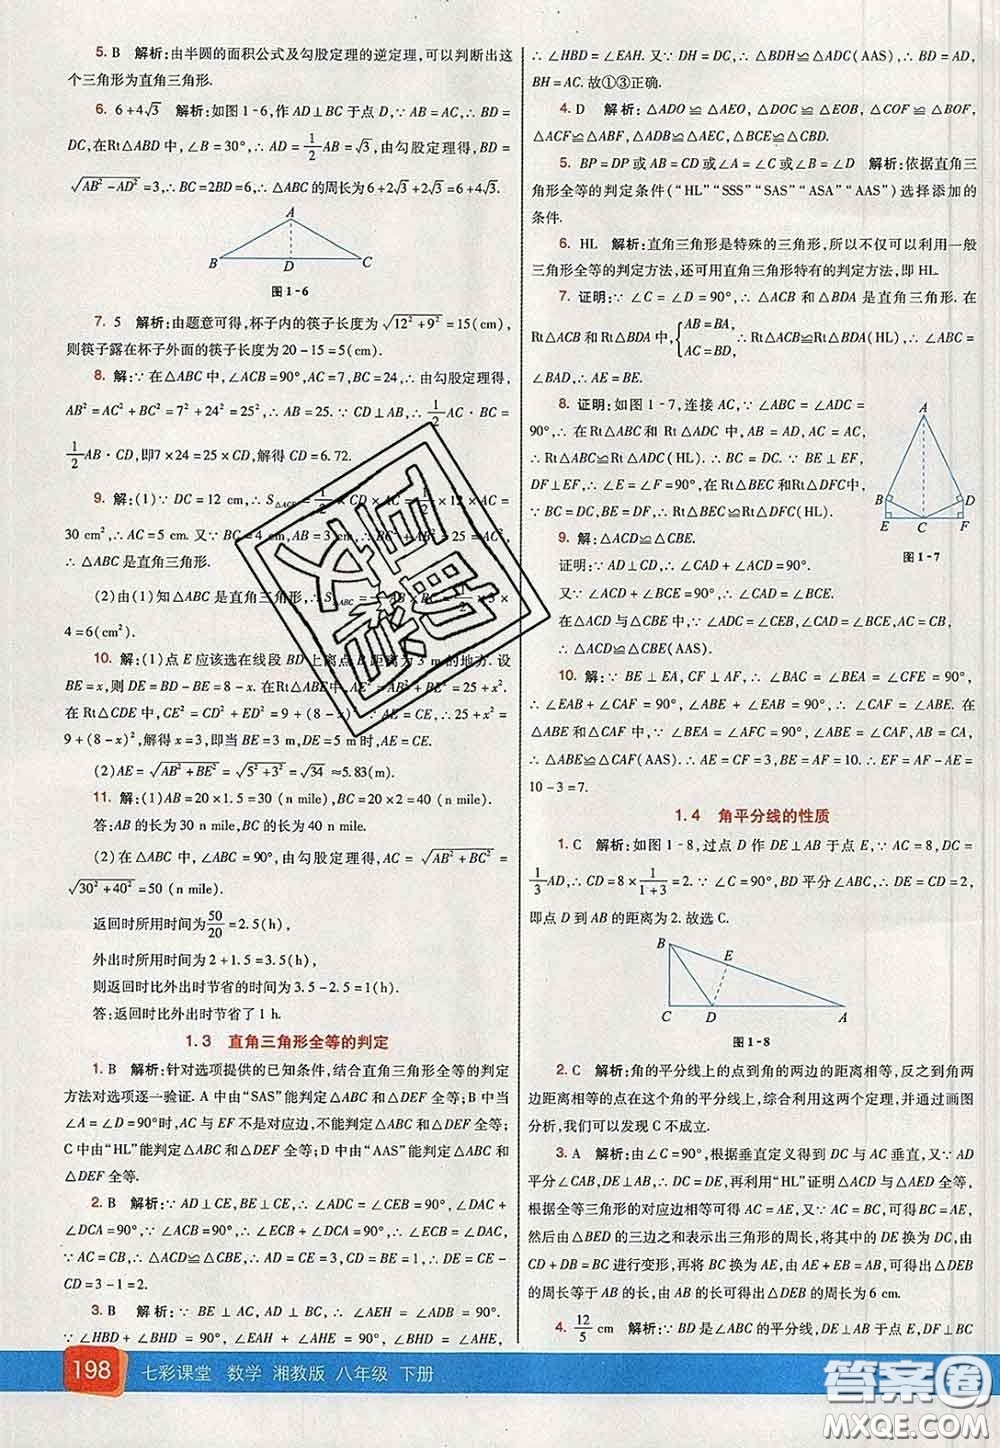 5. B 解析:由半圆的面积公式及勾股定理的逆定理,可以判断出这
个三角形为直角三角形.
6. 6+4√3 解析:如图1-6,作 AD⊥BC 于点 D,∵AB=AC,∴BD=
DC,在Rt△ABD 中,∠B=30°,∴AD=1/2AB=√3,由勾股定理得,BD=
√(AB²-AD²)=3,∴BC=6,∴△ABC 的周长为6+2√3+2√3=6+4√3.
A
B D C
图1-6
7. 5 解析:由题意可得,杯子内的筷子长度为√(12²+9²)=15(cm),
则筷子露在杯子外面的筷子长度为20-15=5(cm).
8. 解:∵在△ABC 中,∠ACB=90°,AC=7,BC=24,∴由勾股定理得,
AB²=AC²+BC²=7²+24²=25²,∴AB=25.∵CD⊥AB,∴1/2AC·BC=
1/2AB·CD,即7×24=25×CD,解得 CD=6.72.
9. 解:(1)∵DC=12 cm,∴S△ACD=1/2×CD×AC=1/2×12×AC=
30 cm²,∴AC=5 cm.又∵BC=4 cm,AB=3 cm,∴AB²+BC²=25=AC²,
∴△ABC 是直角三角形.
(2)由(1)知△ABC 是直角三角形,∴S△ABC=1/2AB·BC=1/2×3×
4=6(cm²)
10. 解:(1)点 E 应该选在线段 BD 上离点 B 距离为 3 m的地方.设
BE=x,则 DE=BD-BE=8-x.在Rt△ABE中,AE²=AB²+BE²=25+x².
在Rt△CDE 中,CE²=CD²+DE²=9+(8-x)².∵AE=CE,∴25+x²=
9+(8-x)²,解得 x=3,即当 BE=3 m,DE=5 m时,AE=CE.
(2)AE=√(AB²+BE²)=√(5²+3²)=√34≈5.83(m).
11. 解:(1)AB=20×1.5=30 (n mile),BC=20×2=40 (n mile).
答:AB 的长为30 n mile,BC 的长为40 n mile.
(2)在△ABC 中,∠ABC=90°,由勾股定理,得 AC=√(AB²+BC²)=
√(30²+40²)=50 (n mile)
返回时所用时间为50/20=2.5(h)
外出时所用时间为2+1.5=3.5(h),
则返回时比外出时节省的时间为3.5-2.5=1(h)
答:返回时比外出时节省了1 h.
1.3 直角三角形全等的判定
1. B 解析:针对选项提供的已知条件,结合直角三角形全等的判定
方法对选项逐一验证.A 中由“SAS”能判定△ABC 和△DEF 全等;B 中当
∠A=∠E=90°时,AC 与 EF 不是对应边,不能判定△ABC 和△DEF 全等;
C 中由“HL”能判定△ABC 和△DEF 全等;D 中由“AAS”能判定△ABC 和
△DEF 全等.
2. B 解析:∵AD⊥CE,BE⊥CE,∴∠ADC=∠CEB=90°,∠DAC+
∠DCA=90°.∵∠ACB=90°,∴∠ECB+∠DCA=90°,∴∠DAC=∠ECB.
∵AC=CB,∴△ACD≌△CBE,∴AD=CE=3,CD=BE=1,∴DE=CE-
CD=3-1=2.
3. B 解析:∵BE⊥AC,AD⊥BC,∴∠AEH=∠ADB=90°.
∵∠HBD+∠BHD=90°,∠EAH+∠AHE=90°,∠BHD=∠AHE,
∴∠HBD=∠EAH.又∵DH=DC,∴△BDH≌△ADC(AAS),∴BD=AD,
BH=AC.故①③正确.
4. D 解析:△ADO≌△AEO,△DOC≌△EOB,△COF≌△BOF,
△ACF≌△ABF,△ADB≌△AEC,△BCE≌△CBD.
5. BP=DP或AB=CD或∠A=∠C或∠B=∠D 解析:依据直角三
角形全等的判定条件(“HL”“SSS”“SAS”“ASA”“AAS”)选择添加的
条件.
6. HL 解析:直角三角形是特殊的三角形,所以不仅可以利用一般
三角形全等的判定方法,还可用直角三角形特有的判定方法,即 HL.
7. 证明:∵∠C=∠D=90°,∴△ACB 和△BDA 是直角三角形.在
Rt△ACB 和 Rt△BDA 中,{AB=BA, AC=BD,∴Rt△ACB≌Rt△BDA(HL),∴∠ABC=
∠BAD,∴AE=BE.
8. 证明:如图1-7,连接 AC,∵∠ABC=∠ADC=
90°,∴在 Rt△ABC 和 Rt△ADC 中,AB=AD,AC=AC,
∴Rt△ABC≌Rt△ADC(HL).∴BC=DC.∵BE⊥EF,
DF⊥EF,∴∠E=∠F=90°.在Rt△BEC 和Rt△DFC中,
∵BC=DC,BE=DF,∴Rt△BEC≌Rt△DFC(HL),
∴CE=CF.
A
B D
E C F
图1-7
9. 解:△ACD≌△CBE.
证明:∵AD⊥CD,∴∠CAD+∠ACD=90°.
又∵∠ACD+∠BCE=90°,∴∠CAD=∠BCE.
在△ACD 与△CBE 中,∵∠ADC=∠CEB,∠CAD=∠BCE,AC=CB,
∴△ACD≌△CBE(AAS).
10. 解:∵BE⊥EA,CF⊥AF,∴∠BAC=∠BEA=∠CFE=90°,
∴∠EAB+∠CAF=90°,∠ABE+∠EAB=90°,∴∠CAF=∠ABE.在
△ABE 和△CAF 中,∵∠BEA=∠AFC=90°,∠EBA=∠CAF,AB=CA,
∴△ABE≌△CAF(AAS).∴AE=CF=3,BE=AF=10.∴EF=AF-AE=
10-3=7.
1.4 角平分线的性质
1. C 解析:如图1-8,过点 D 作 DE⊥AB 于点 E,∵AC=8,DC=
1/3AD,∴CD=8×1/(1+3)=2.∵∠C=90°,BD 平分∠ABC,∴DE=CD=2,
即点 D 到 AB 的距离为2.故选C.
B
E
C D A
图1-8
2. C 解析:角的平分线上的点到角的两边的距离相等,反之到角两
边距离相等的点在这个角的平分线上,综合利用这两个定理,并通过画图
分析,我们可以发现 C 不成立.
3. A 解析:由∠C=90°,根据垂直定义得到 DC 与 AC 垂直,又∵AD
平分∠CAB,DE⊥AB,利用“HL”证明△ACD 与△AED 全等,
根据全等三角形的对应边相等,可得 AC=AE,又∵AC=BC,可得 BC=AE,
然后由△BED 的三边之和表示出三角形的周长,将其中 DE换成 CD,由
CD+DB=BC 进行变形,再将 BC 换成 AE,由 AE+EB=AB,可得△DEB
的周长等于 AB 的长,由 AB 的长可得出△DEB 的周长为6 cm.
4. 12/5 cm 解析:如图,∵BD 是∠ABC 的平分线,DE⊥AB,DF⊥BC
198 七彩课堂 数学 湘教版 八年级 下册
答案圈
MXQE.COM